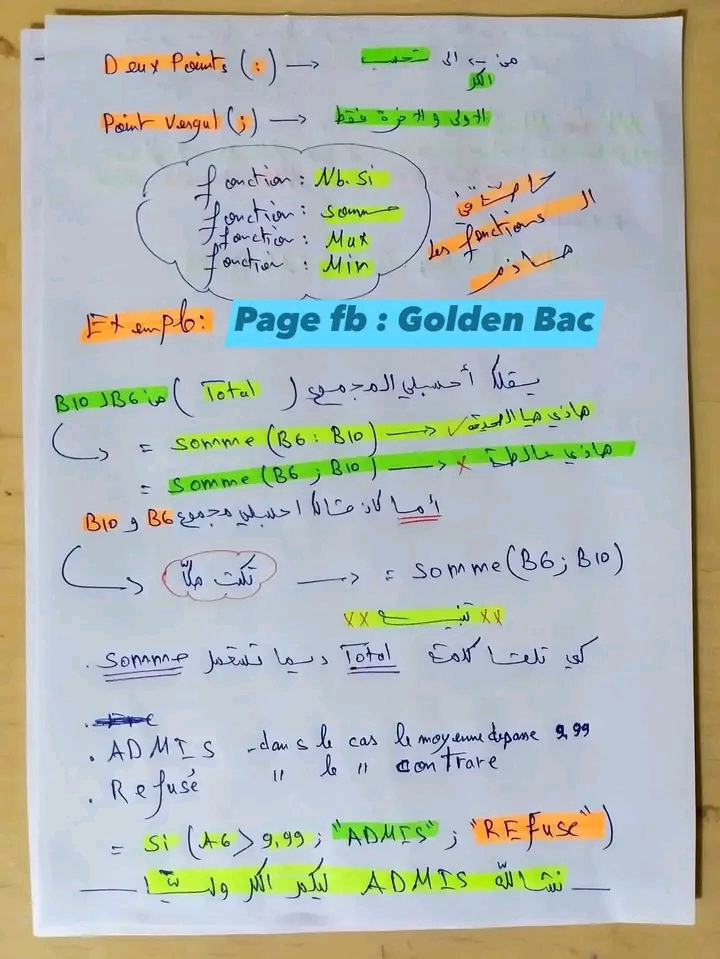 Deux Points (:) → من → الى تحسب
الكل
Point Vergul (;) → الاولى والاخرة فقط
fonction : Nb.Si
fonction : somme
fonction : Max
fonction : Min
خاصة في
les fonctions الـ
هاذم
Exemple:
Page fb : Golden Bac
يقلك أحسبلي المجموع (Total) من B6 لـ B10
= somme (B6 : B10) → ✓ هاذي هيا الصحيحة
= somme (B6 ; B10) → x هاذي غالطة
أما كان قالك احسبلي مجموع B6 و B10
تكتب → = somme (B6 ; B10)
xx تنبيه xx
. كي تلقا كلمة Total ديما تستعمل somme
. ADMIS - dans le cas le moyenne depasse 9,99
. Refusé " le " contrare
= Si (A6 > 9,99 ; "ADMIS" ; "REfuse")
نشالله ADMIS ليكم الكل